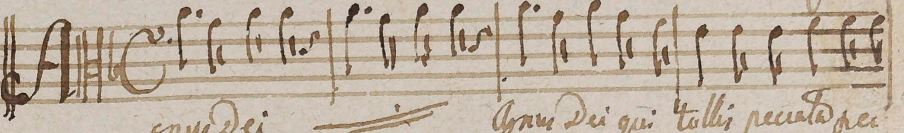 Agnus Dei Agnus Dei qui tollis peccata pec